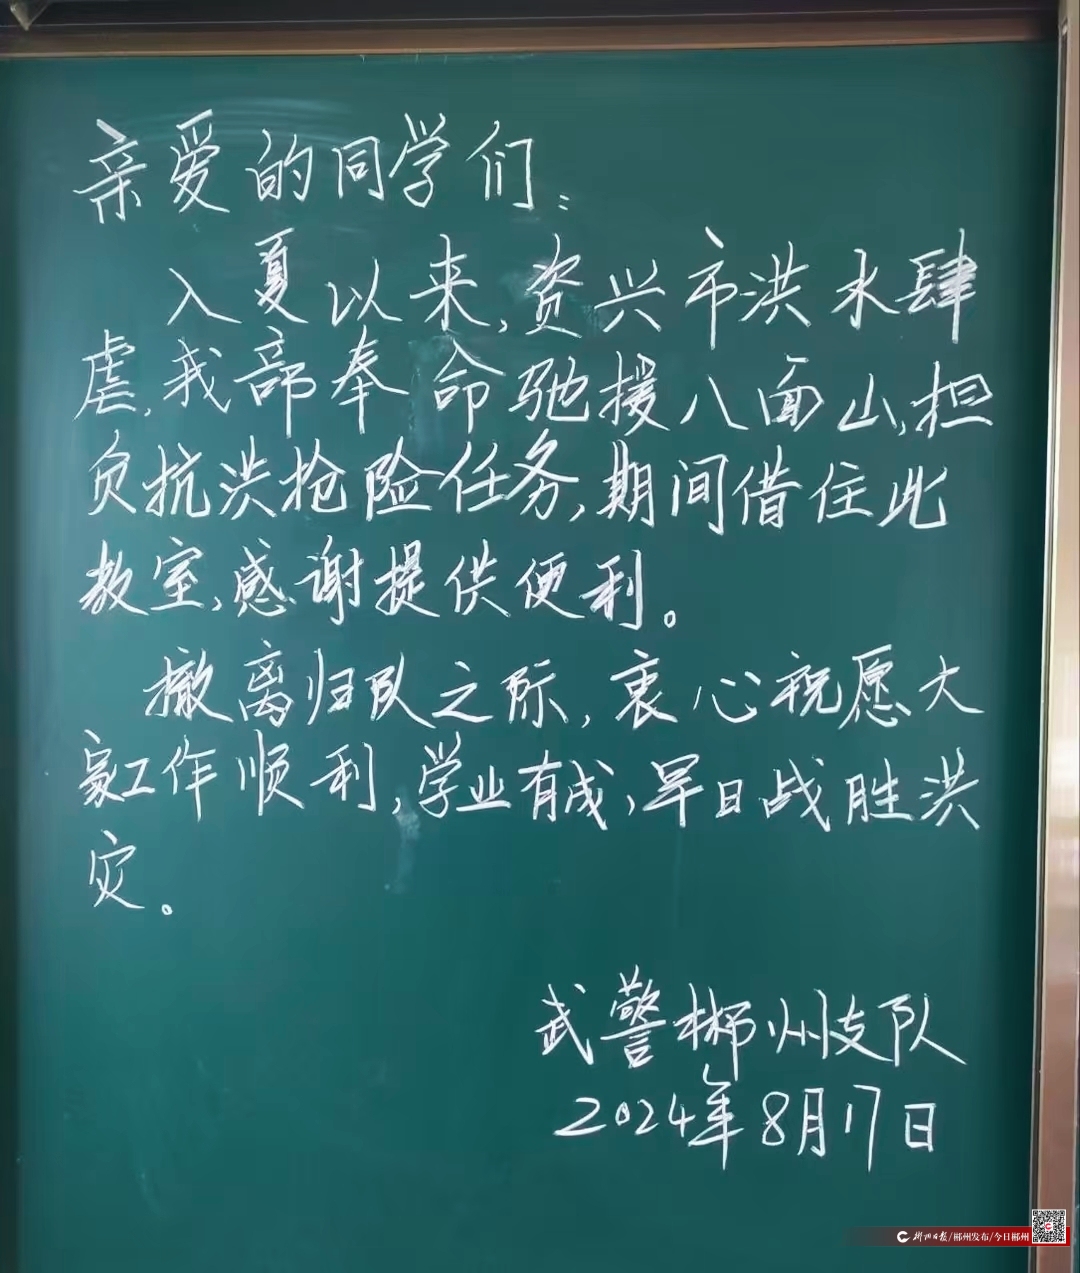 亲爱的同学们：
入夏以来，资兴市洪水肆
虐，我部奉命驰援八面山，担
负抗洪抢险任务，期间借住此
教室，感谢提供便利。
撤离归队之际，衷心祝愿大
家工作顺利，学业有成，早日战胜洪
灾。
武警郴州支队
2024年8月17日
郴州日报/郴州发布/今日郴州